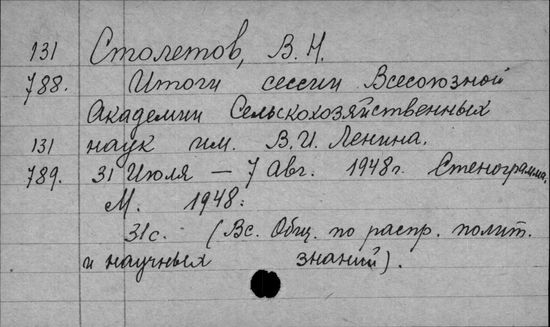 131 Столетов, В. Н.
788. Итоги сессии Всесоюзной
Академии Сельскохозяйственных
131 наук им. В. И. Ленина.
789. 31 Июля — 7 Авг. 1948г. Стенограмма.
М. 1948.
31с. (Вс. Общ. по распр. полит.
и научных знаний).